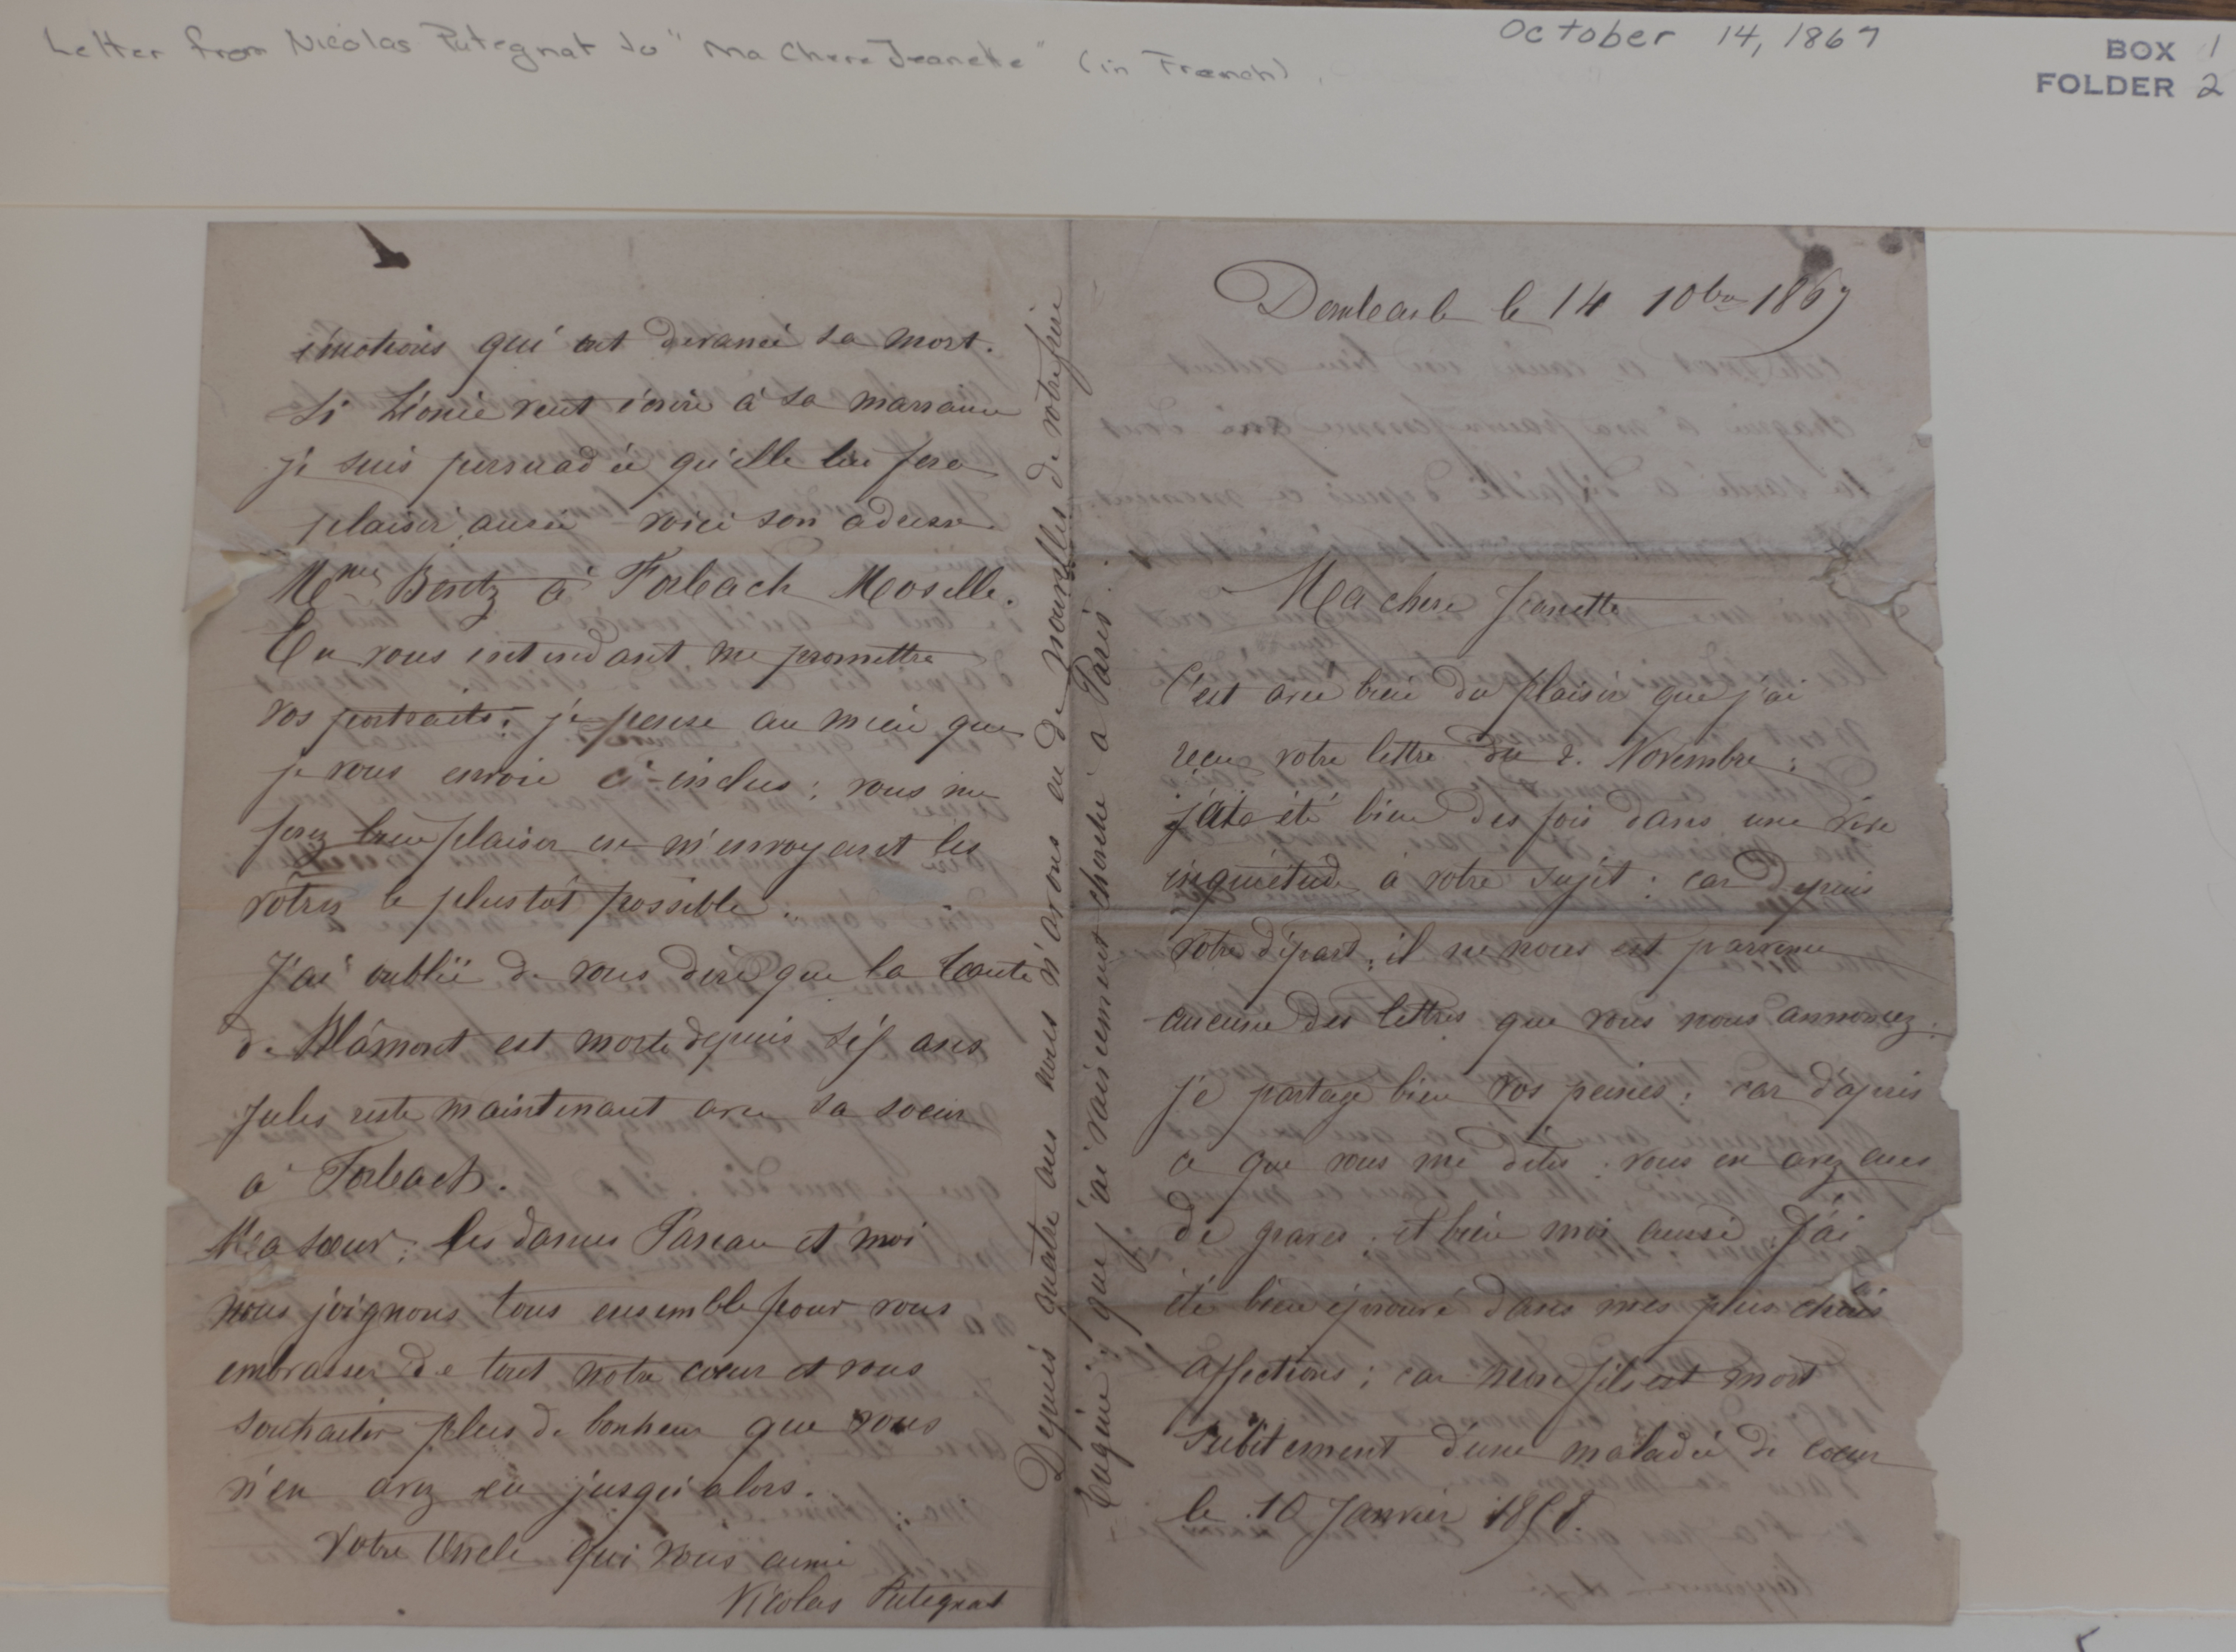 Letter from Nicolas Putegnat to "Ma Chere Jeanette" (in French)
October 14, 1867
BOX 1
FOLDER 2
le 14 10bre 1867
Ma chere Jeanette
C'est avec bien du plaisir que j'ai
reçu votre lettre du 2. Novembre :
j'ai été bien des fois dans une vive
inquiétude à votre sujet : car depuis
votre départ, il ne nous est parvenu
aucune des lettres que vous nous annoncez.
je partage bien vos peines : car d'après
ce que vous me dites : vous en avez eues
de graves ; et bien moi aussi j'ai
été bien éprouvé dans mes plus chères
affections ; car mon fils est mort
subitement d'une maladie de coeur
le 10 Janvier 1858.
émotions qui ont devancé sa mort.
Si Léonie veut écrire à sa marraine
je suis persuadée qu'elle lui fera
plaisir aussi voici son adresse
Mme Bentz à Forbach Moselle.
En vous entendant me promettre
vos portraits : je pense au mien que
je vous envoie ci-inclus : vous me
ferez bien plaisir en m'envoyant les
vôtres le plustôt possible.
J'ai oublié de vous dire que la tante
de Blâmont est morte depuis sèp ans
Jules reste maintenant avec sa soeur
à Forbach.
Ma soeur : les dames et moi
nous joignons tous ensemble pour vous
embrasser de tout notre coeur et vous
souhaiter plus de bonheur que vous
n'en avez eù jusqu'alors.
Votre Uncle qui vous aime
Nicolas Putegnat
Depuis quatre ans nous n'avons eu de nouvelles de votre frère
Eugène ; que j'ai vainement cherché à Paris.